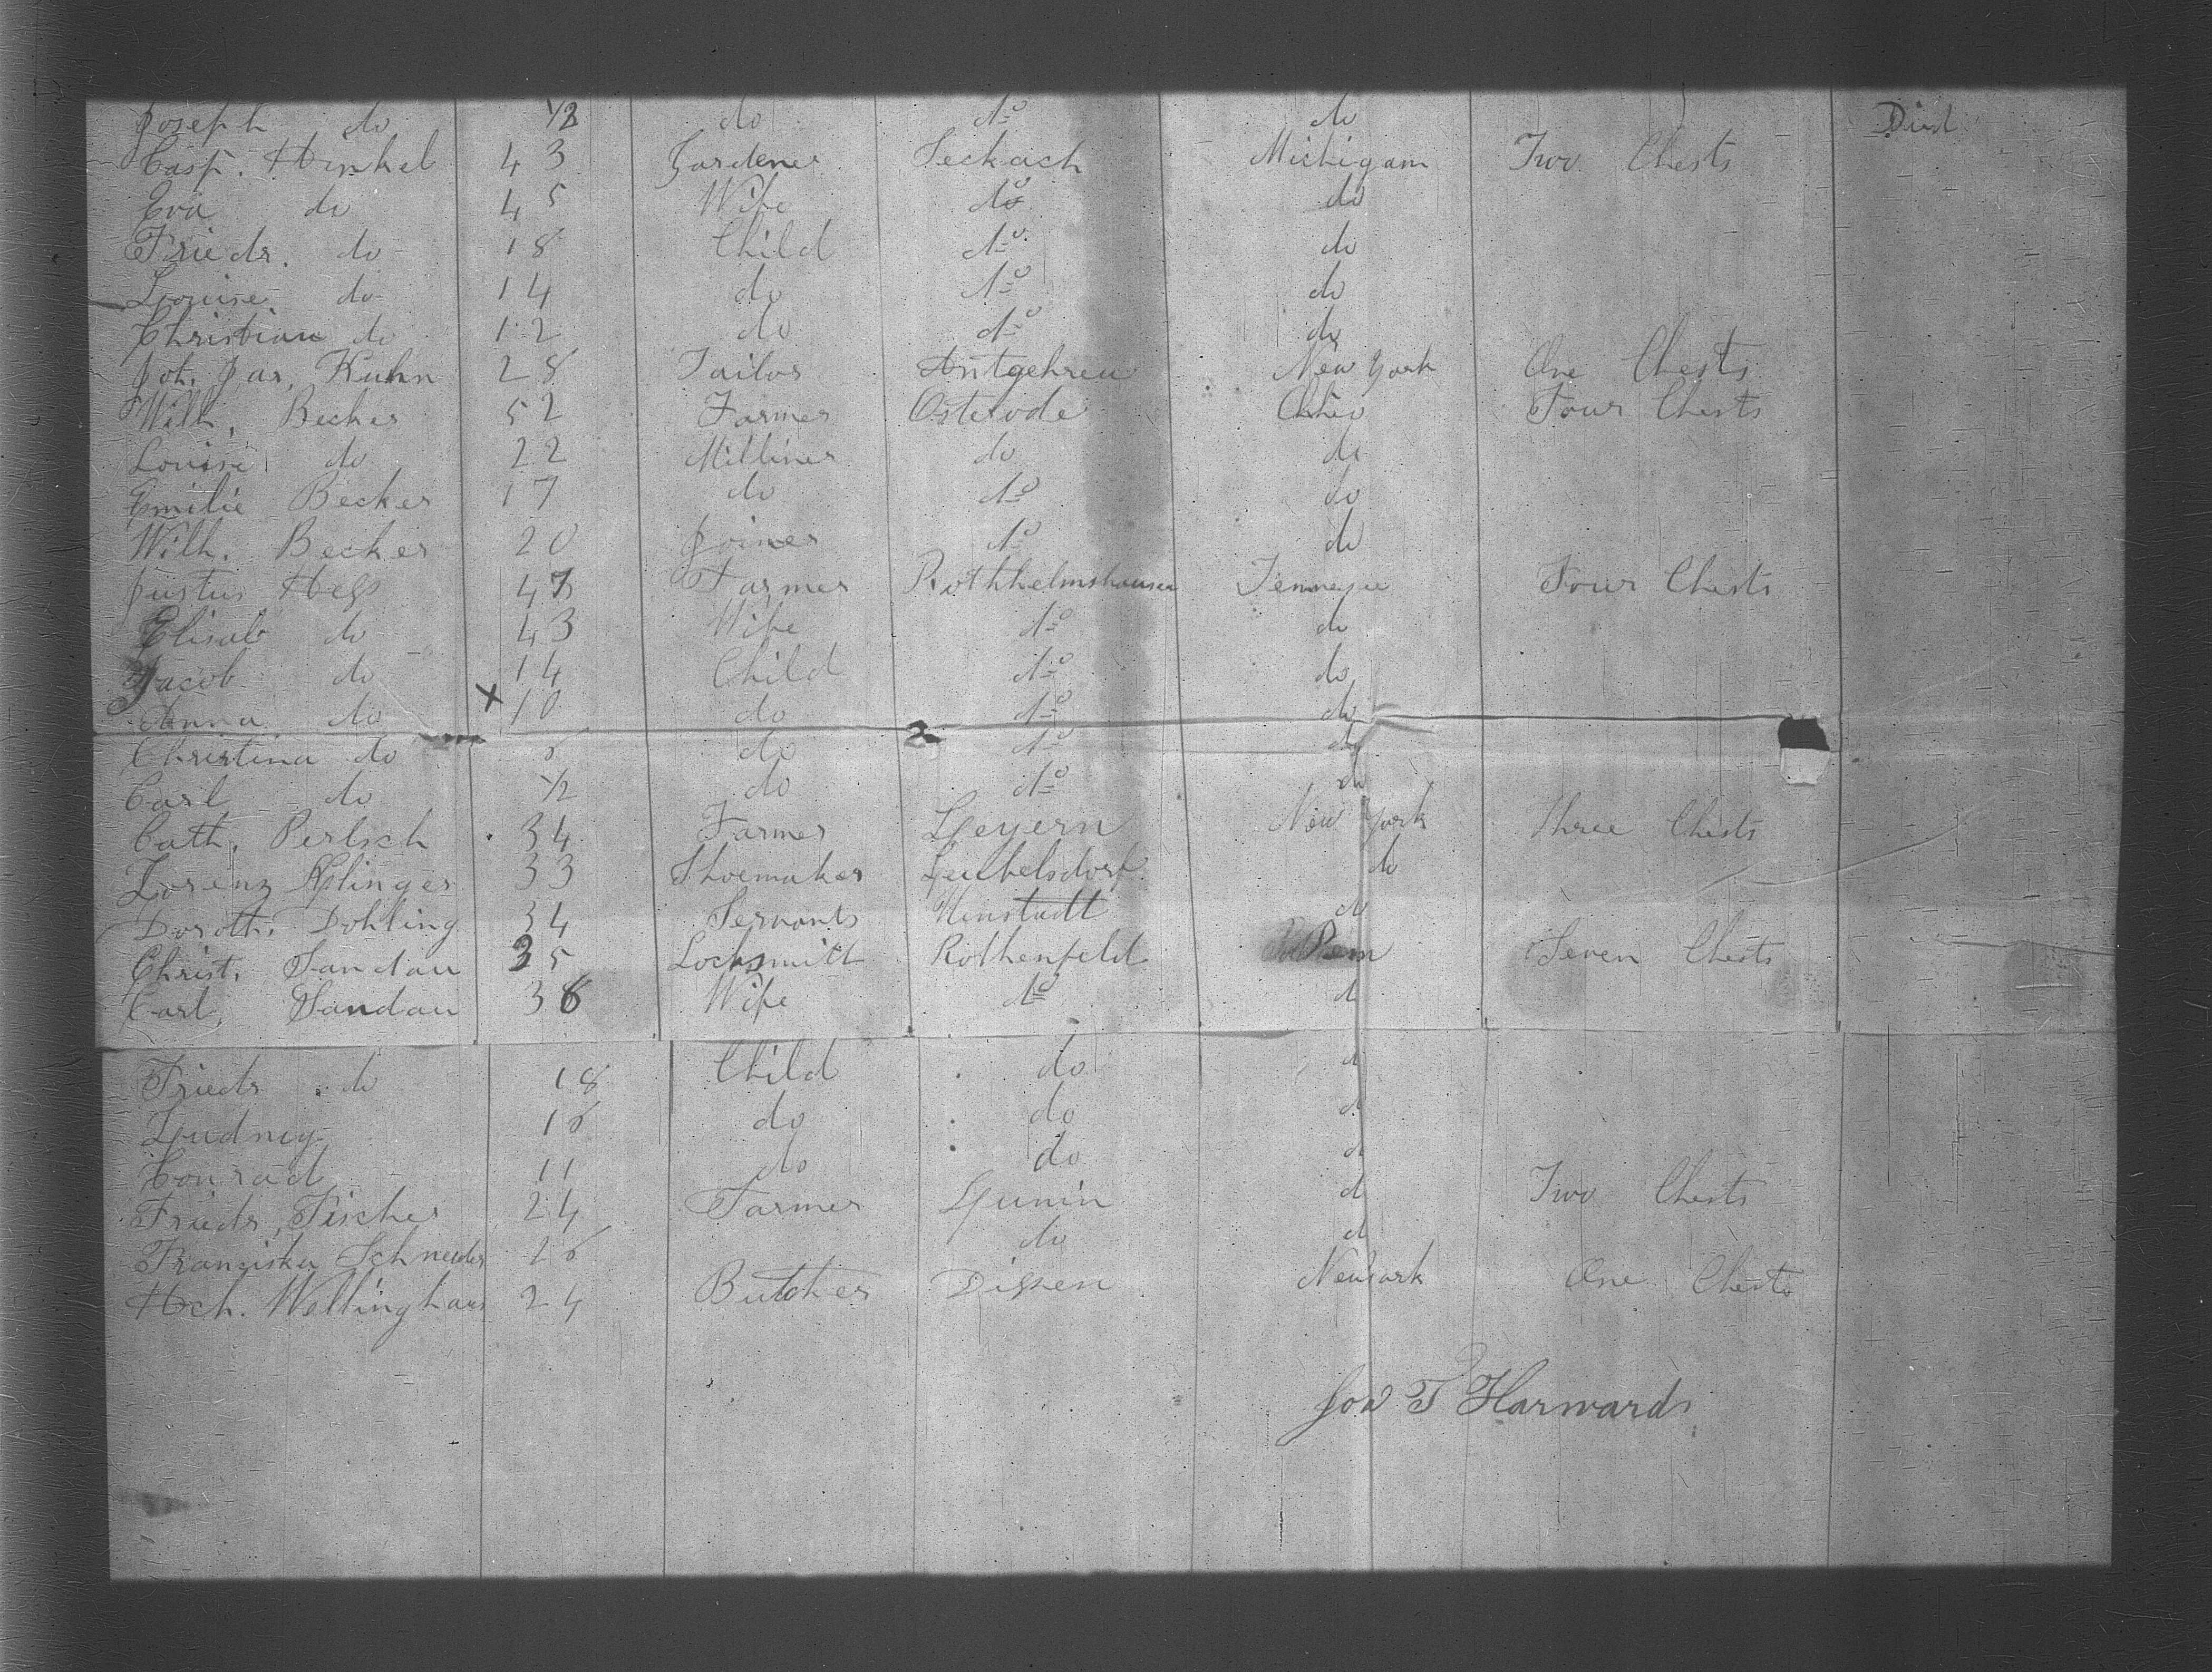 Joseph do 1/2 do do do Died
Casp. Hinkel 43 Gardener Seckach Michigam Two Chests
Eva do 45 Wife do do
Friedr. do 18 Child do do
Louise do 14 do do do
Christian do 12 do do do
Joh. Kuhn 28 Tailor New York One Chests
Wilh. Becker 52 Farmer Osterode Ohio Four Chests
Louise do 22 Milliner do do
Emilie Becker 17 do do do
Wilh. Becker 20 Joiner do do
Justus Hess 47 Farmer Rothhelmshausen Tennessee Four Chests
Elisab do 43 Wife do do
Jacob do 14 Child do do
Anna do X 10 do do do
Christina do 6 do do do
Carl do 1/2 do do do
Cath. Perlsch 34 Farmer Leyern New York Three Chests
Lorenz 33 Shoemaker Leubelsdorf do
Doroth. Dohling 34 Servants Neustadt do
Christ. Sandau 35 Locksmitt Rothenfeld Seven Chests
Carl, Sandau 36 Wife do d
Friedr do 18 Child do d
Ludnig 16 do do d
Conrad 11 do do d
Friedr, Fischer 24 Farmer Lunin d Two Chests
Franziska Schneider 26 do d
Hch. Wellinghaus 24 Butcher Dissen Newyork One Chests
T Harwards